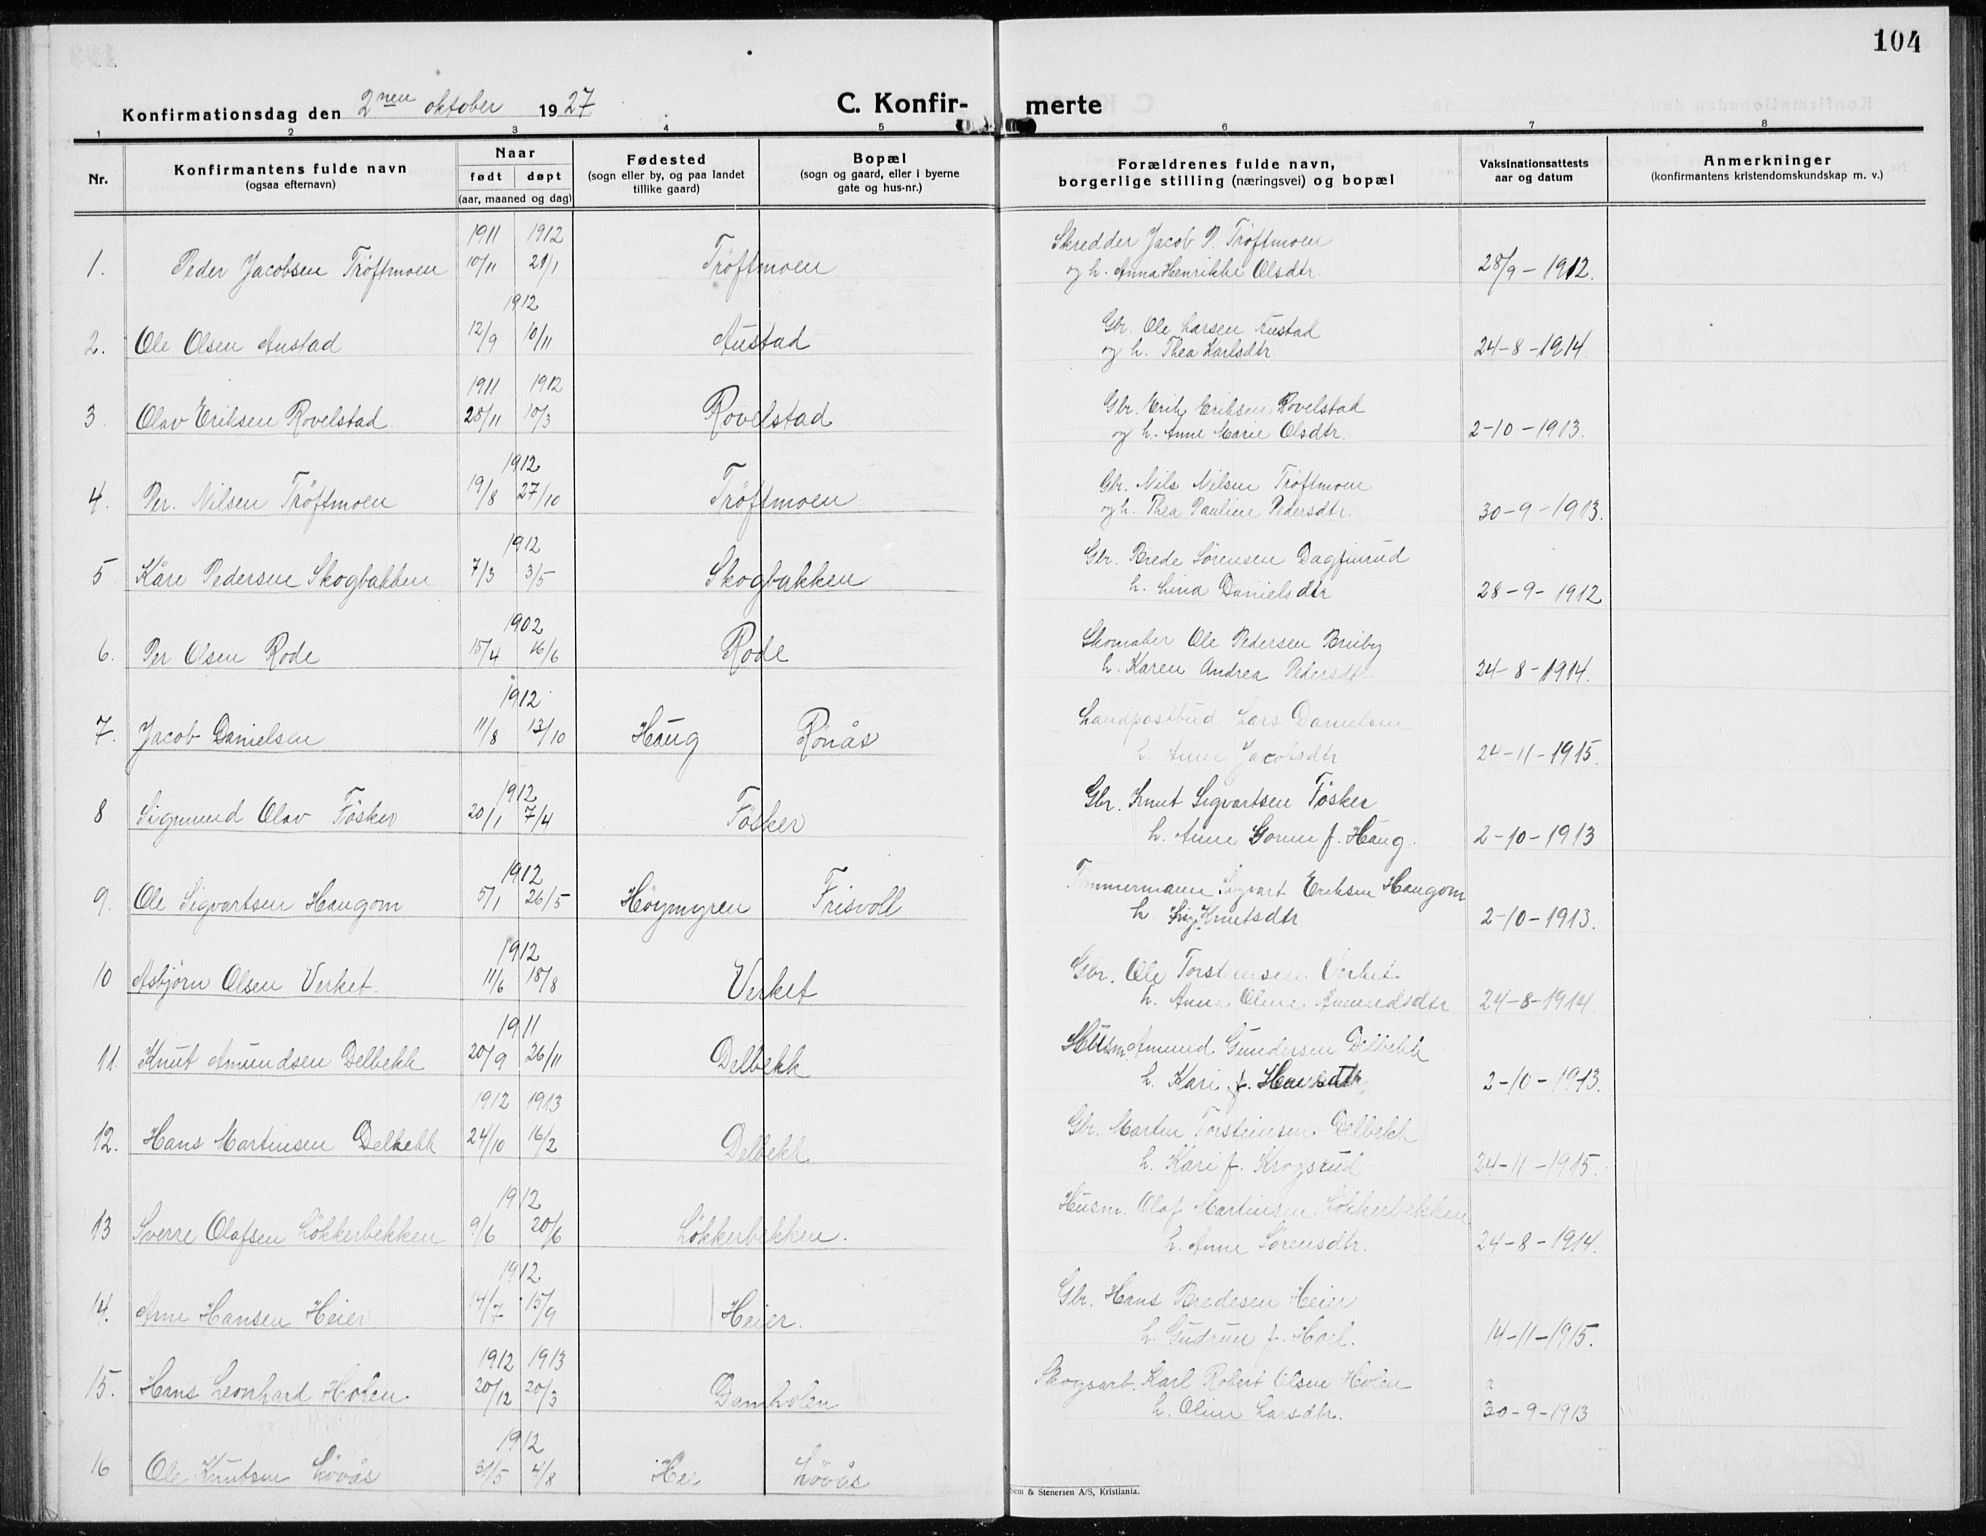 104
Konfirmationsdag den 2nen oktober 1927.
C. Konfirmerte
1 2 3 4 5 6 7 8
Nr.
Konfirmantens fulde navn
(ogsaa efternavn)
Naar
født døpt
(aar, maaned og dag)
Fødested
(sogn eller by, og paa landet
tillike gaard)
Bopæl
(sogn og gaard, eller i byerne
gate og hus-nr.)
Forældrenes fulde navn,
borgerlige stilling (næringsvei) og bopæl
Vaksinationsattests
aar og datum
Anmerkninger
(konfirmantens kristendomskundskap m. v.)
1911 1912 Skredder Jacob P. Trøftmoen
1. Peder Jacobsen Trøftmoen 10/11 21/1 Trøftmoen og h. Anna Henrikke Olsdtr. 28/9 - 1912.
1912 Gbr. Ole Larsen Austad
2. Ole Olsen Austad 12/9 10/11 Austad og h. Thea Karlsdtr. 24-8-1914.
1911 1912 Gbr. Erik Eriksen Rovelstad
3. Olav Eriksen Rovelstad. 25/11 10/3 Rovelstad og h. Anne Marie Olsdtr. 2-10-1913.
1912 Gbr. Nils Nilsen Trøftmoen
4. Per. Nilsen Trøftmoen 19/8 27/10 Trøftmoen og h. Thea Pauline Pedersdtr. 30-9-1913.
1912 Gbr. Brede Sørensen Dagfinrud
5 Kåre Pedersen Skogbakken 7/3 3/5 Skogbakken h. Lina Danielsdtr 28-9-1912
1902 Skomaker Ole Pedersen
6. Per Olsen Rode 15/4 16/6 Rode h. Karen Andrea Pedersdtr. 24-8-1914.
1912 Landpostbud Lars Danielsen
7. Jacob Danielsen 11/8 13/10 Haug Rønås h. Anne Jacobsdtr 24-11-1915.
1912 Gbr. Knut Sigvartsen Føsker
8 Sigmund Olav Føsker 20/1 7/4 Føsker h. Anne Gorine f. Haug. 2-10-1913
1912 Tømmermann Sigvart Eriksen Haugom
9. Ole Sigvartsen Haugom 5/1 26/5 Høymyren Frisvoll h. Knutsdtr 2-10-1913.
1912 Gbr. Ole Torstensen Verket
10 Asbjørn Olsen Verket. 11/6 18/8 Verket h. Anna Oline Amundsdtr 24-8-1914.
1911 Husm. Amund Gundersen Delbekk
11. Knut Amundsen Delbekk 20/9 26/11 Delbekk h. Kari f. 2-10-1913.
1912 1913 Gbr. Martin Torsteinsen Delbekk
12. Hans Martinsen Delbekk 24/10 16/2 Delbekk h. Kari f. Krogsrud 24-11-1915.
1912 Husm. Olaf Martinsen Løkkerbekken
13 Sverre Olafsen Løkkerbekken 9/6 20/6 Løkkerbekken. h. Anne Sørensdtr. 24-8-1914.
1912 Gbr. Hans Bredesen Heier
14. Arne Hansen Heier 14/7 15/9 Heier. h. Gudrun f. Hoel. 14-11-1915.
1912 1913 Skogsarb. Karl Robert Olsen Holen
15. Hans Leonhard Holen 20/12 20/3 Damholen h. Oline Larsdtr. 30-9-1913
1912
16 Ole Knutsen Løvås 31/5 4/8 Løvås
Sem & Stenersen A/S, Kristiania.